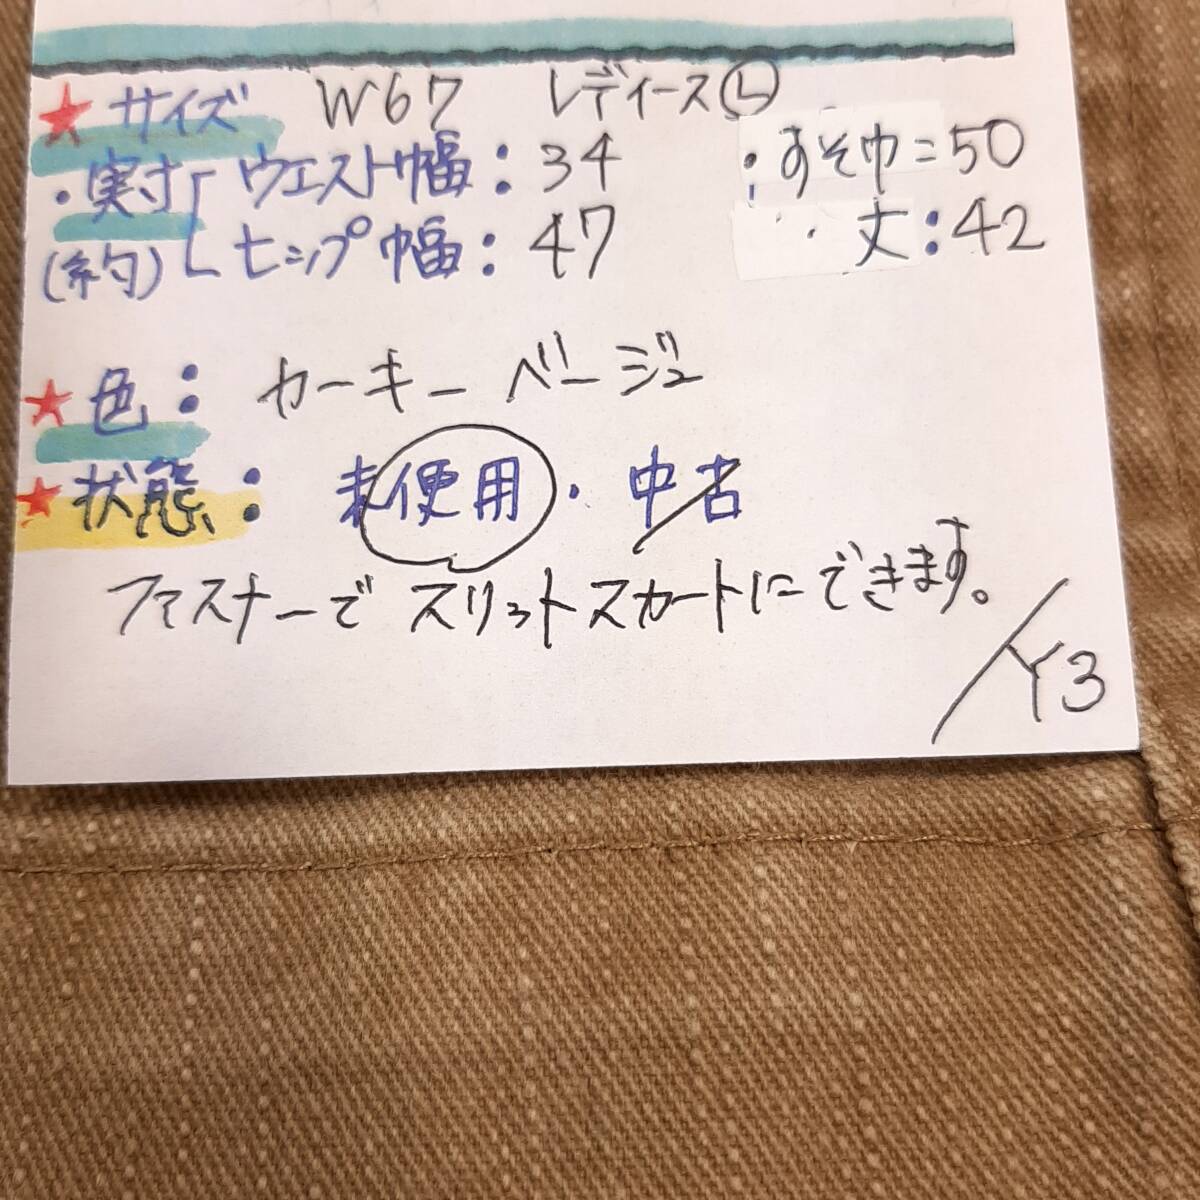 ★サイズ W67 レディースⓁ
・実寸 ウエスト幅:34 ・すそ巾=50
(約) ヒップ幅:47 ・丈:42
★色: カーキーベージュ
★状態: 未使用・中古
ファスナーでスリットスカートにできます。
Y3